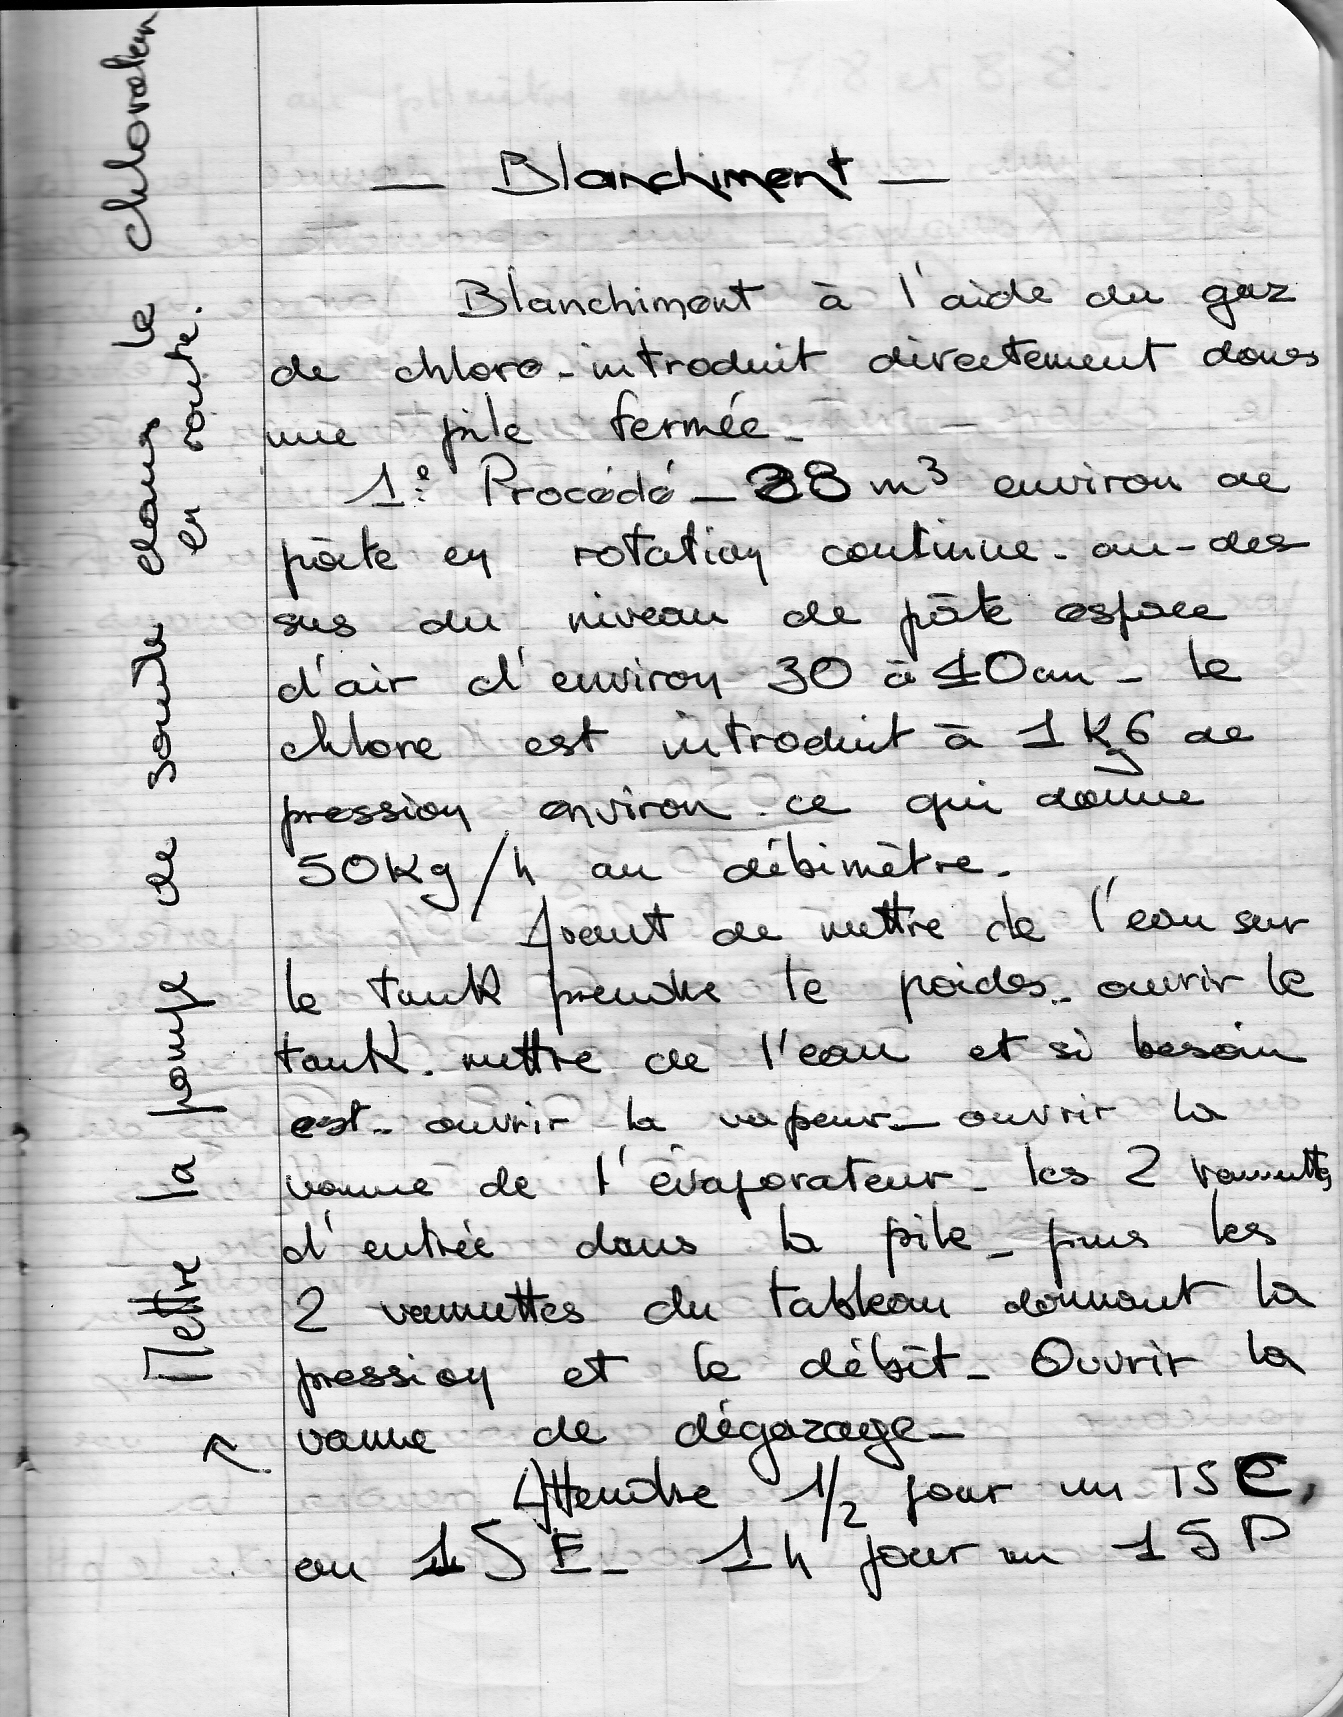 — Blanchiment —
Blanchiment à l'aide du gaz
de chlore - introduit directement dans
une pile fermée -
1º: Procédé - 38 m³ environ de
pâte en rotation continue - au-des
sus du niveau de pâte espace
d'air d'environ 30 à 40 cm - le
chlore est introduit à 1 Kg 6 de
pression environ ce qui donne
50 Kg/h au débimètre.
Avant de mettre de l'eau sur
le tank prendre le poids - ouvrir le
tank. mettre de l'eau et si besoin
est - ouvrir la vapeur - ouvrir la
vanne de l'évaporateur - les 2 vannettes
d'entrée dans la pile - puis les
2 vannettes du tableau donnant la
pression et le débit - Ouvrir la
vanne de dégazage -
Attendre 1/2 pour un 15 C,
ou 15 E - 1 h pour un 15 D
Mettre la pompe de soude dans le chloration
en route.